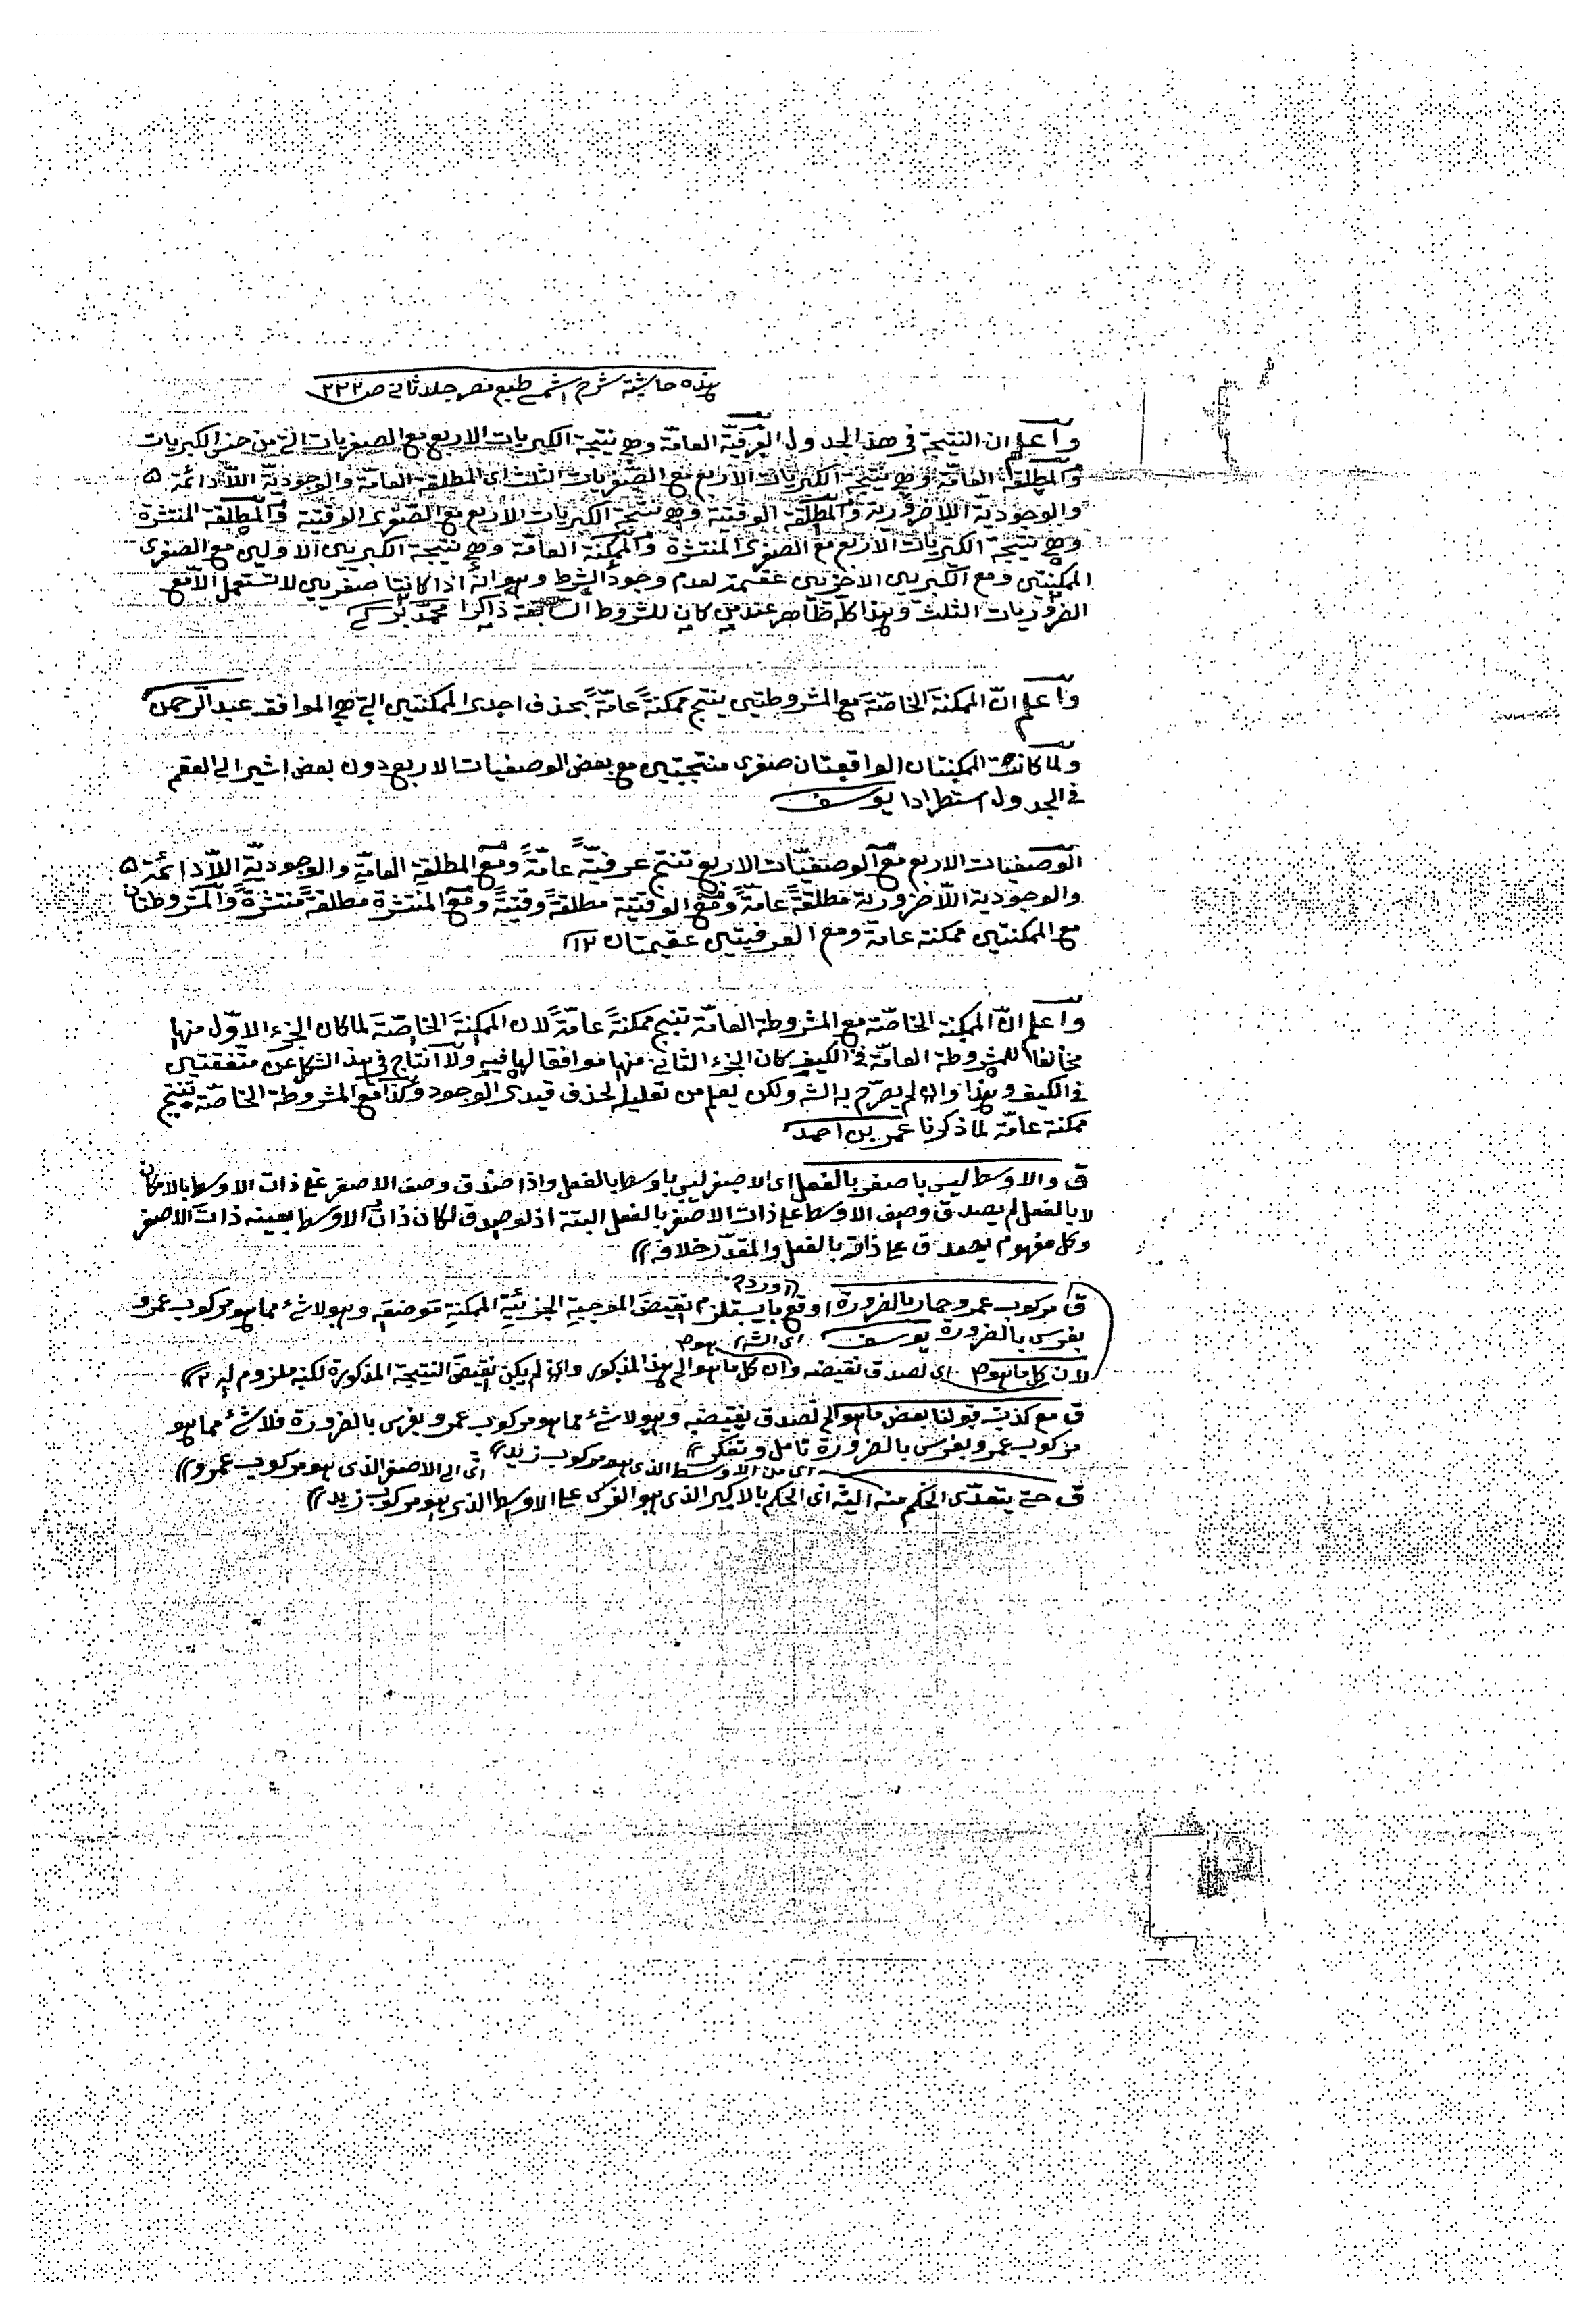 هذه حاشية شرح الشمسي طبع مصر جلد ثاني ص ٢٣٢
واعلم ان النتيجة في هذ الجدول العرفيّة العامّة وهي نتيجة الكبريات الاربع مع الصغريات التي من جنس الكبريات
والمطلقة العامّة وهي نتيجة الكبريات الاربع مع الصّغريات الثلث اى المطلقة العامّة والوجوديّة اللّادائمة
والوجوديّة اللّاضروريّة والمطلقة الوقتيّة وهي نتيجة الكبريات الاربع مع الصّغرى الوقتيّة والمطلقة المنتشرة
وهي نتيجة الكبريات الاربع مع الصغرى المنتشرة والممكنة العامّة وهي نتيجة الكبريين الاوليين مع الصغرى
الممكنتين ومع الكبريين الاخريين عقيمة لعدم وجود الشرط وهو انّه اذا كانتا صغريين لا تستعمل الّا مع
الضروريات الثلث وهذا كلّه ظاهر عند من كان للشروط السّابقة ذاكرا محمد بركي
واعلم انّ الممكنةَ الخاصّةَ مع المشروطتين ينتج ممكنةً عامّةً بحذف احدى الممكنتين التي هي الموافقة عبد الرّحمن
ولما كانت الممكنتان الواقعتان صغرى منتجتين مع بعض الوصفيات الاربع دون بعض اشير الى العقم
في الجدول استطرادا يوسف
الوصفيات الاربع مع الوصفيّات الاربع تنتج عرفيّةً عامّةً ومع المطلقةِ العامّةِ والوجوديّةِ اللّادائمة
والوجودية اللّاضرورية مطلقةً عامّةً ومع الوقتيّة مطلقةً وقتيّةً ومع المنتشرة مطلقةً منتشرةً والمشروطتان
مع الممكنتين ممكنة عامّة ومع العرفيتين عقيمتان ١٢
واعلم انّ الممكنة الخاصّة مع المشروطة العامّة تنتج ممكنةً عامّةً لان الممكنةَ الخاصّةَ لما كان الجزء الاوّل منها
مخالفا للمشروطة العامّة في الكيف كان الجزء الثاني منها موافقا لها فيه ولا انتاج في هذ الشكل عن متفقتين
في الكيف وهذا وان لم يصرّح به الشه ولكن يعلم من تعليله لحذف قيدى الوجود وكذا مع المشروطة الخاصّة تنتج
ممكنة عامّة لما ذكرنا عمر بن احمد
ق والاوسط ليس باصغر بالفعل اى الاصغر ليس باوسط بالفعل واذا صدق وصف الاصغر على ذات الاوسط بالامكان
لا بالفعل لم يصدق وصف الاوسط على ذات الاصغر بالفعل البتة اذ لو صدق لكان ذات الاوسط بعينه ذات الاصغر
وكل مفهوم يصدق على ذاته بالفعل والمقدّر خلافه
ق مركوب عمرو حمار بالضرورة اوقع بايستلزم نقيض الموجبة الجزئيّة الممكنة موضعه وهو لا شئ مما هو مركوب عمرو
بفرس بالضرورة يوسف
لان كل ما هو اى لصدق نقيضه وان كل ما هو الخ هذا المذكور وان لم يكن نقيض النتيجة المذكورة لكنه ملزوم له
ق مع كذب قولنا بعض ما هو الخ لصدق نقيضه وهو لا شئ مما هو مركوب عمرو بفرس بالضرورة فلا شئ مما هو
مركوب عمرو بفرس بالضرورة تامل وتفكر
اى من الاوسط الذى هو مركوب زيد اى الى الاصغر الذى هو مركوب عمرو
ق حتى يتعدّى الحكم منه اليه اى الحكم بالاكبر الذى هو الفرس على الاوسط الذى هو مركوب زيد